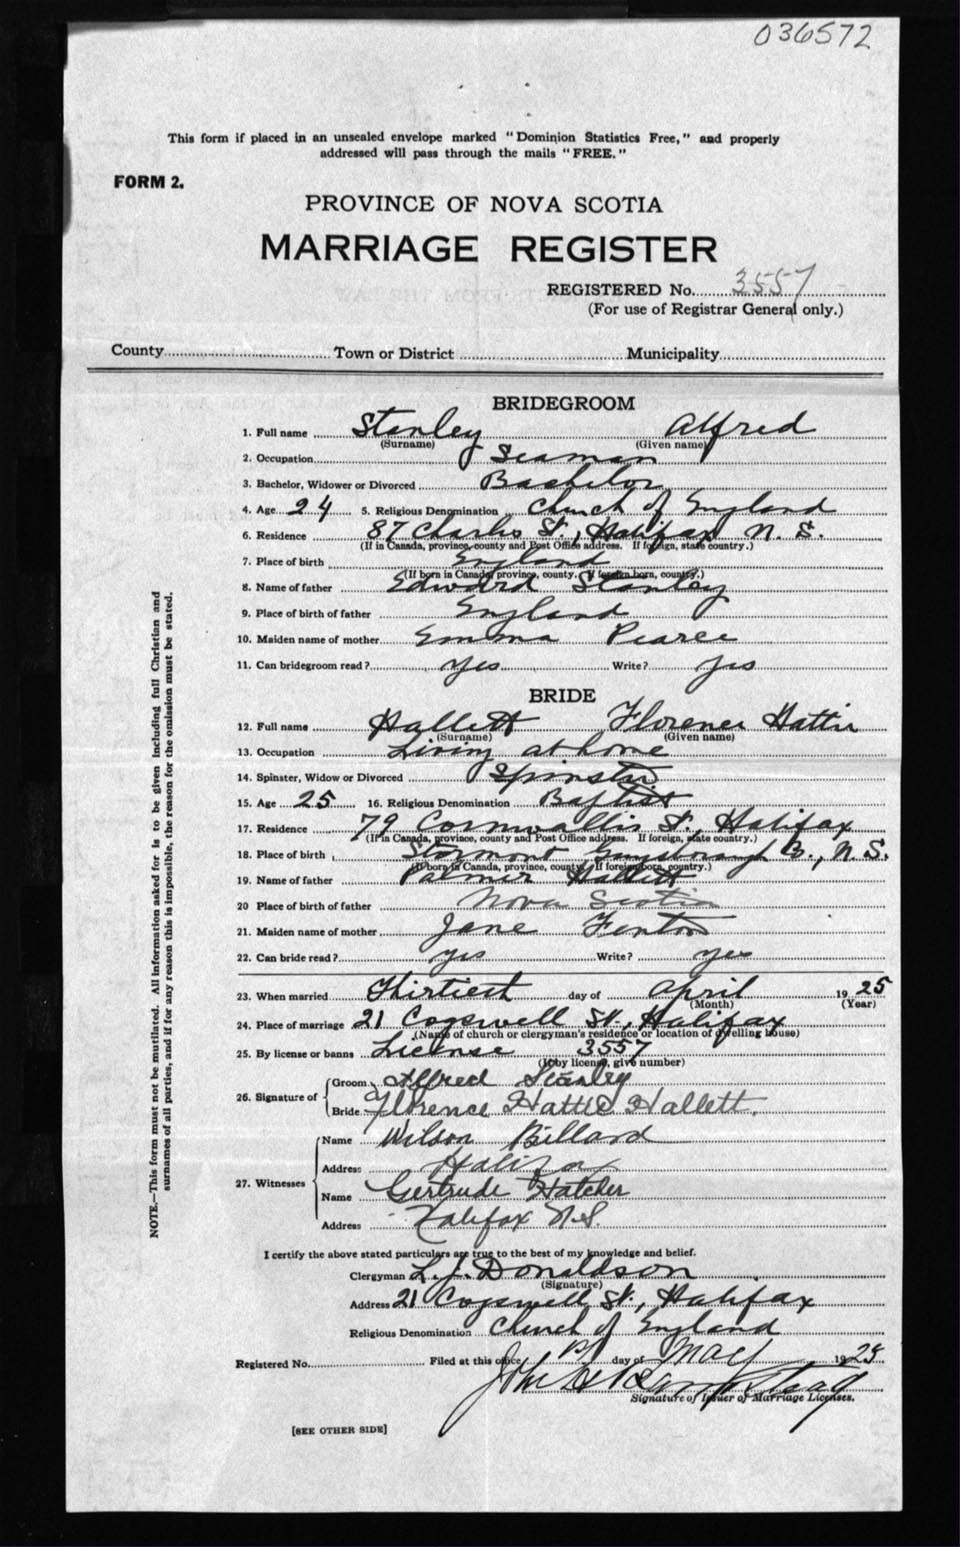 036572
This form if placed in an unsealed envelope marked "Dominion Statistics Free," and properly
addressed will pass through the mails "FREE."
FORM 2.
PROVINCE OF NOVA SCOTIA
MARRIAGE REGISTER
REGISTERED No. 3557
(For use of Registrar General only.)
County Town or District Municipality
BRIDEGROOM
1. Full name Stanley Alfred
(Surname) (Given name)
2. Occupation Seaman
3. Bachelor, Widower or Divorced Bachelor
4. Age 24 5. Religious Denomination Church of England
6. Residence 87 Charles St., Halifax N. S.
(If in Canada, province, county and Post Office address. If foreign, state country.)
7. Place of birth England
(If born in Canada, province, county. If foreign born, country.)
8. Name of father Edward Stanley
9. Place of birth of father England
10. Maiden name of mother Emma Pearce
11. Can bridegroom read? Yes Write? Yes
BRIDE
12. Full name Hallett Florence Hattie
(Surname) (Given name)
13. Occupation Living at home
14. Spinster, Widow or Divorced Spinster
15. Age 25 16. Religious Denomination Baptist
17. Residence 79 Cornwallis St., Halifax
(If in Canada, province, county and Post Office address. If foreign, state country.)
18. Place of birth Stormont Guysborough N.S.
(If born in Canada, province, county. If foreign born, country.)
19. Name of father Palmer Hallett
20 Place of birth of father Nova Scotia
21. Maiden name of mother Jane Fenton
22. Can bride read? yes Write? yes
23. When married Thirtiest day of April 1925
(Month) (Year)
24. Place of marriage 21 Cogswell St., Halifax
(Name of church or clergyman's residence or location of dwelling house)
25. By license or banns License 3557
(If by license, give number)
26. Signature of Groom Alfred Stanley
Bride Florence Hattie Hallett.
27. Witnesses
Name Wilson Billard
Address Halifax
Name Gertrude Hatcher
Address Halifax N.S.
I certify the above stated particulars are true to the best of my knowledge and belief.
Clergyman L. J. Donaldson
(Signature)
Address 21 Cogswell St., Halifax
Religious Denomination Church of England
Registered No. Filed at this office 1st day of May 1925
John
Signature of Issuer of Marriage Licenses.
[SEE OTHER SIDE]
NOTE.—This form must not be mutilated. All information asked for is to be given including full Christian and
surnames of all parties, and if for any reason this is impossible, the reason for the omission must be stated.